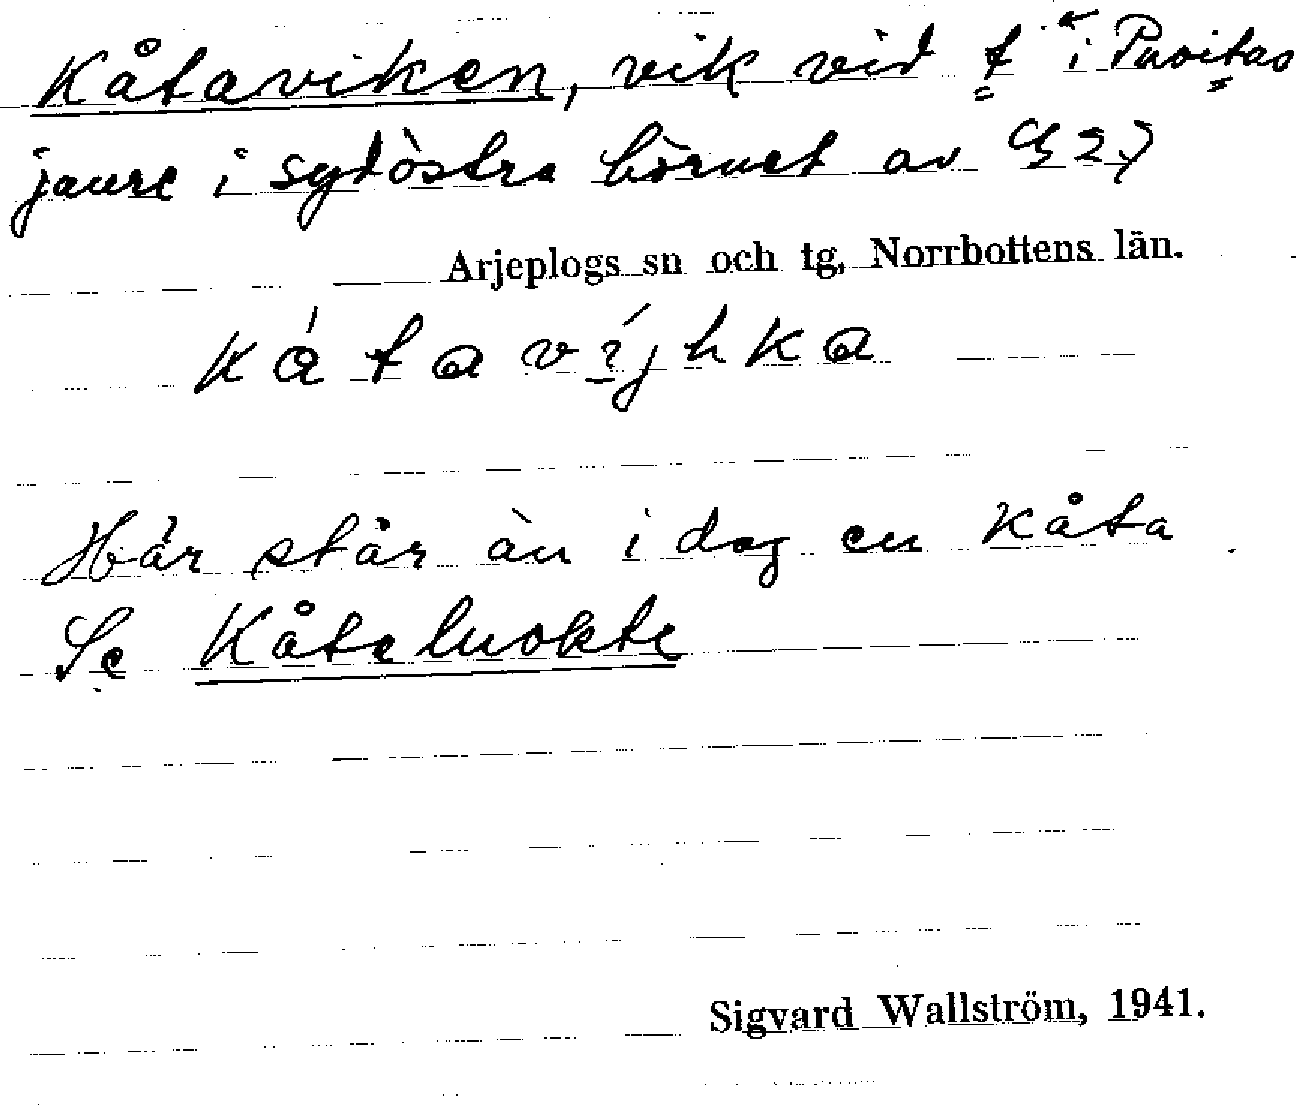 Kåtaviken, vik vid t i Puoitas
jaure i sydöstra hörnet av G 27
Arjeplogs sn och tg, Norrbottens län.
kátavíjhka
Här står än i dag en kåta
Se Kåtaluokte
Sigvard Wallström, 1941.